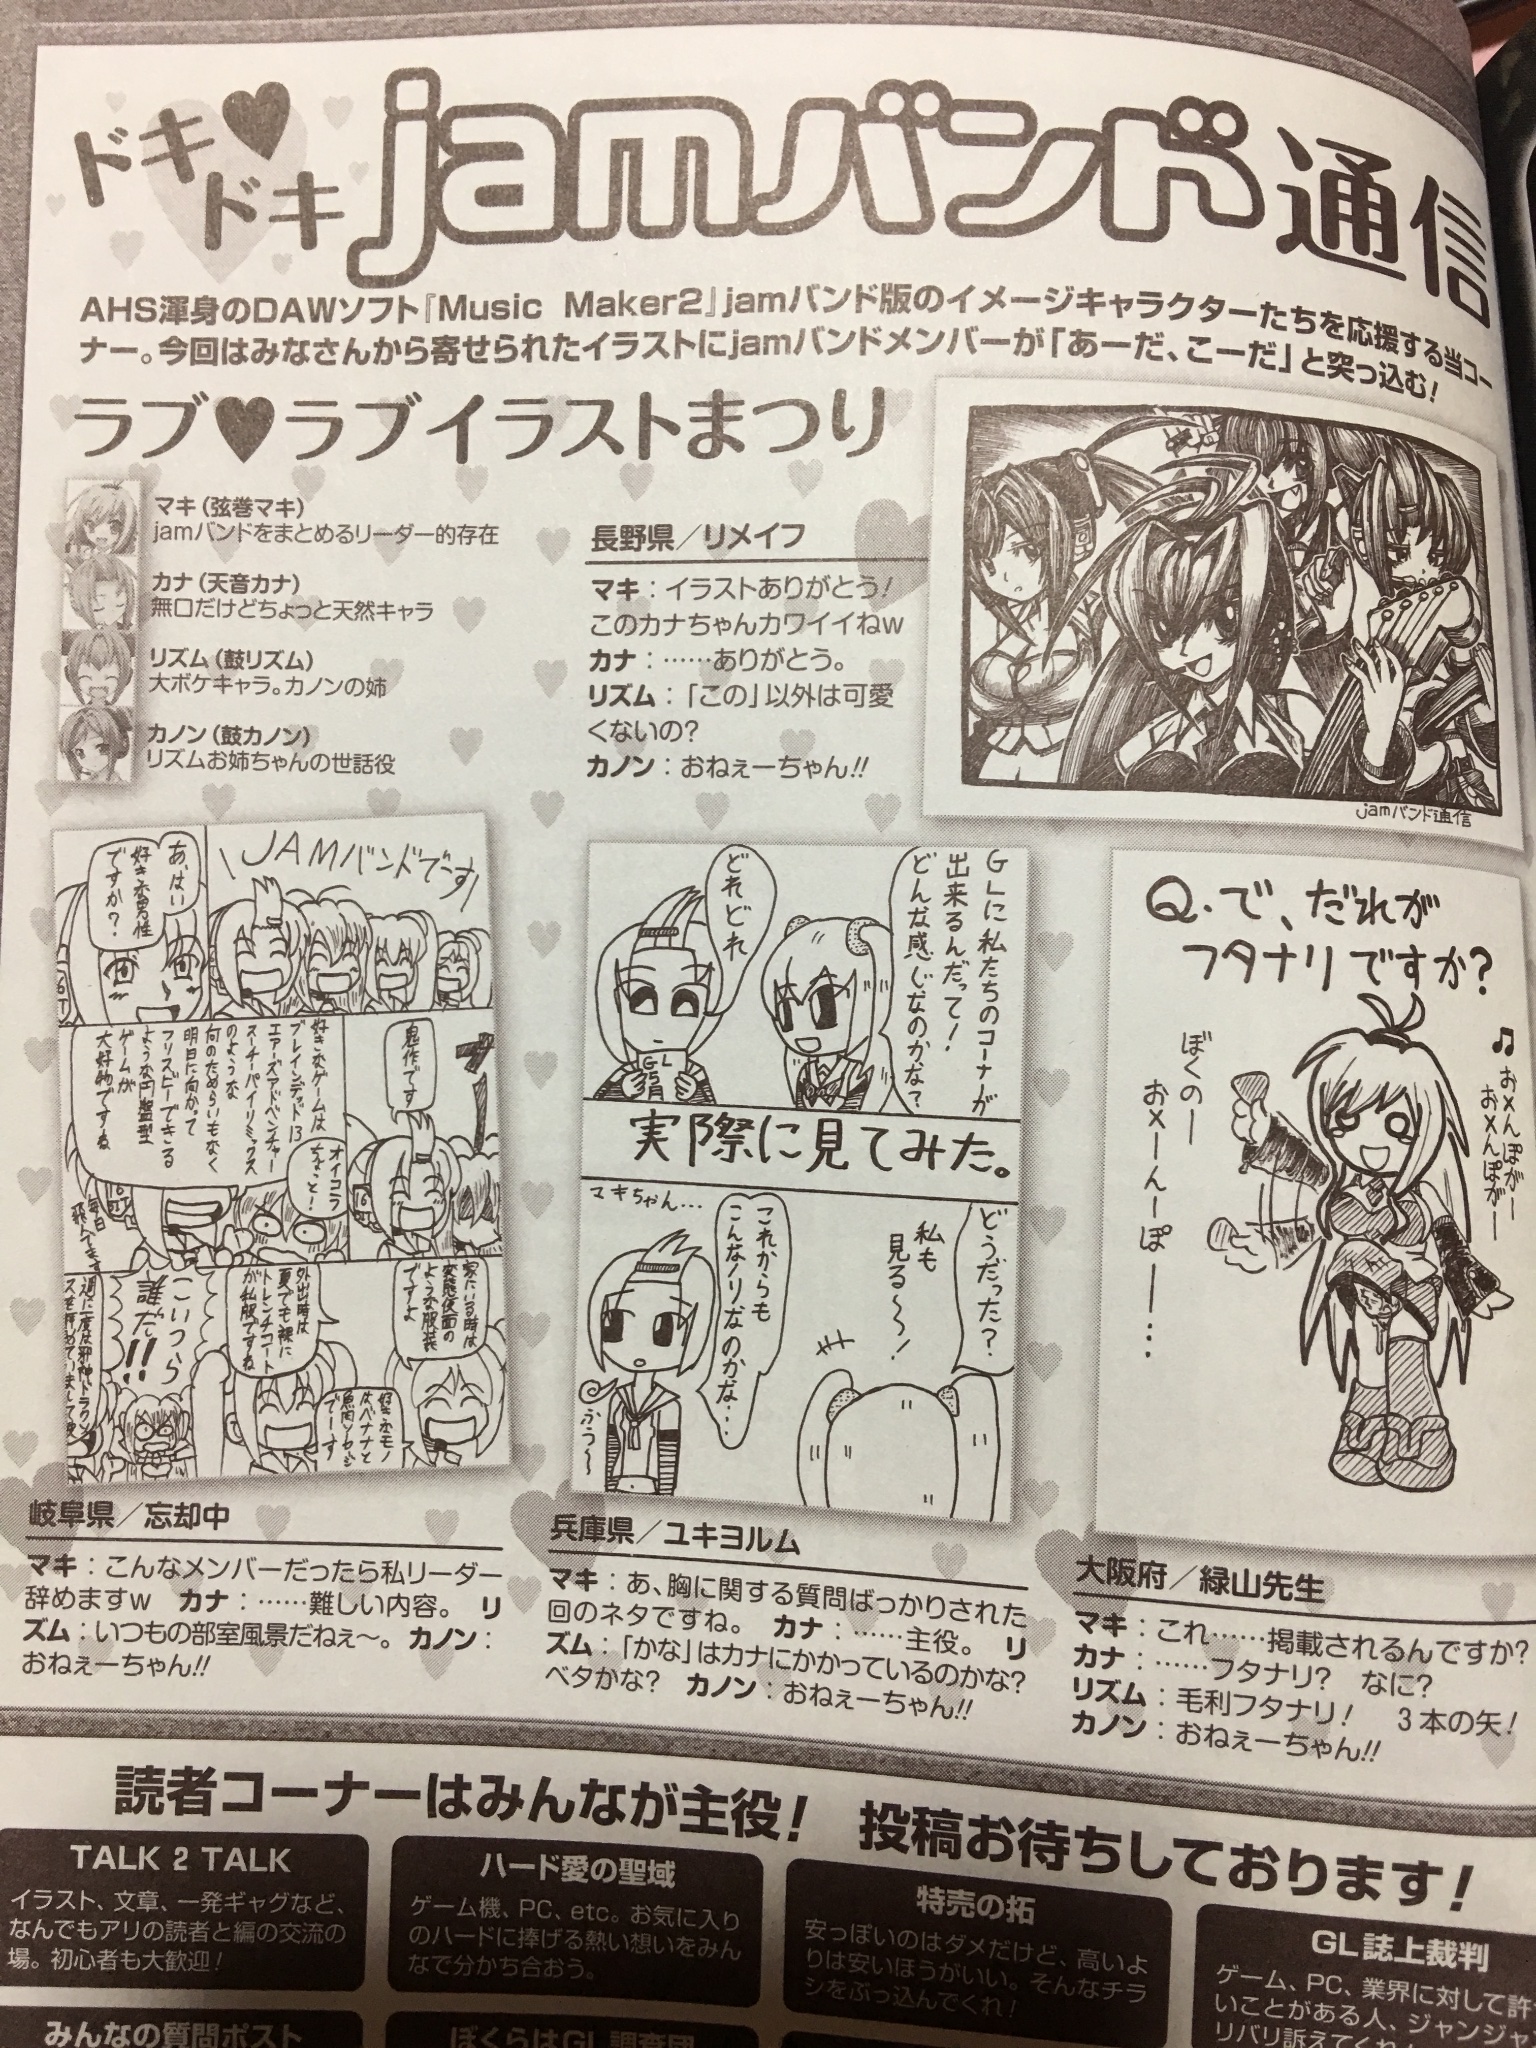 ドキ♥ドキ jamバンド通信
AHS渾身のDAWソフト『Music Maker2』jamバンド版のイメージキャラクターたちを応援する当コー
ナー。今回はみなさんから寄せられたイラストにjamバンドメンバーが「あーだ、こーだ」と突っ込む!
ラブ♥ラブイラストまつり
マキ(弦巻マキ)
jamバンドをまとめるリーダー的存在
カナ(天音カナ)
無口だけどちょっと天然キャラ
リズム(鼓リズム)
大ボケキャラ。カノンの姉
カノン(鼓カノン)
リズムお姉ちゃんの世話役
長野県/リメイフ
マキ:イラストありがとう!
このカナちゃんカワイイねw
カナ:……ありがとう。
リズム:「この」以外は可愛
くないの?
カノン:おねぇーちゃん!!
jamバンド通信
JAMバンドでーす
あ、はい
好きな男性
ですか?
鬼作です
好きなゲームは
ブレインデッド13
エアーズアドベンチャー
スーチーパイリミックス
のような
何のためらいもなく
明日に向かって
フリスビーできる
ような円盤型
ゲームが
大好物ですね
オイコラ
ちょっと!
毎日
家にいる時は
変態仮面の
ような服装
ですよ
外出時は
夏でも裸に
トレンチコート
が私服ですね
好きなモノ
はバナナと
魚肉ソーセージ
でーす
こいつら
誰だ!!
岐阜県/忘却中
マキ:こんなメンバーだったら私リーダー
辞めますw カナ:……難しい内容。 リ
ズム:いつもの部室風景だねぇ〜。 カノン:
おねぇーちゃん!!
GLに私たちのコーナーが
出来るんだって!
どんな感じなのかな?
どれどれ
GL
5月
実際に見てみた。
どうだった?
私も
見る〜!
これからも
こんなノリなのかな…
マキちゃん…
ふぅ〜
兵庫県/ユキヨルム
マキ:あ、胸に関する質問ばっかりされた
回のネタですね。 カナ:……主役。 リ
ズム:「かな」はカナにかかっているのかな?
ベタかな? カノン:おねぇーちゃん!!
Q.で、だれが
フタナリですか?
♫おメんぽがー
おメんぽがー
ぼくのー
おメーんーぽー…
大阪府/緑山先生
マキ:これ……掲載されるんですか?
カナ:……フタナリ? なに?
リズム:毛利フタナリ! 3本の矢!
カノン:おねぇーちゃん!!
読者コーナーはみんなが主役! 投稿お待ちしております!
TALK 2 TALK
イラスト、文章、一発ギャグなど、
なんでもアリの読者と編の交流の
場。初心者も大歓迎!
ハード愛の聖域
ゲーム機、PC、etc。お気に入り
のハードに捧げる熱い想いをみん
なで分かち合おう。
特売の拓
安っぽいのはダメだけど、高いよ
りは安いほうがいい。そんなチラ
シをぶっ込んでくれ!
GL誌上裁判
ゲーム、PC、業界に対して許
いことがある人、ジャンジャン
リバリ訴えてくれ!
みんなの質問ポスト
ぼくらはGL調査団